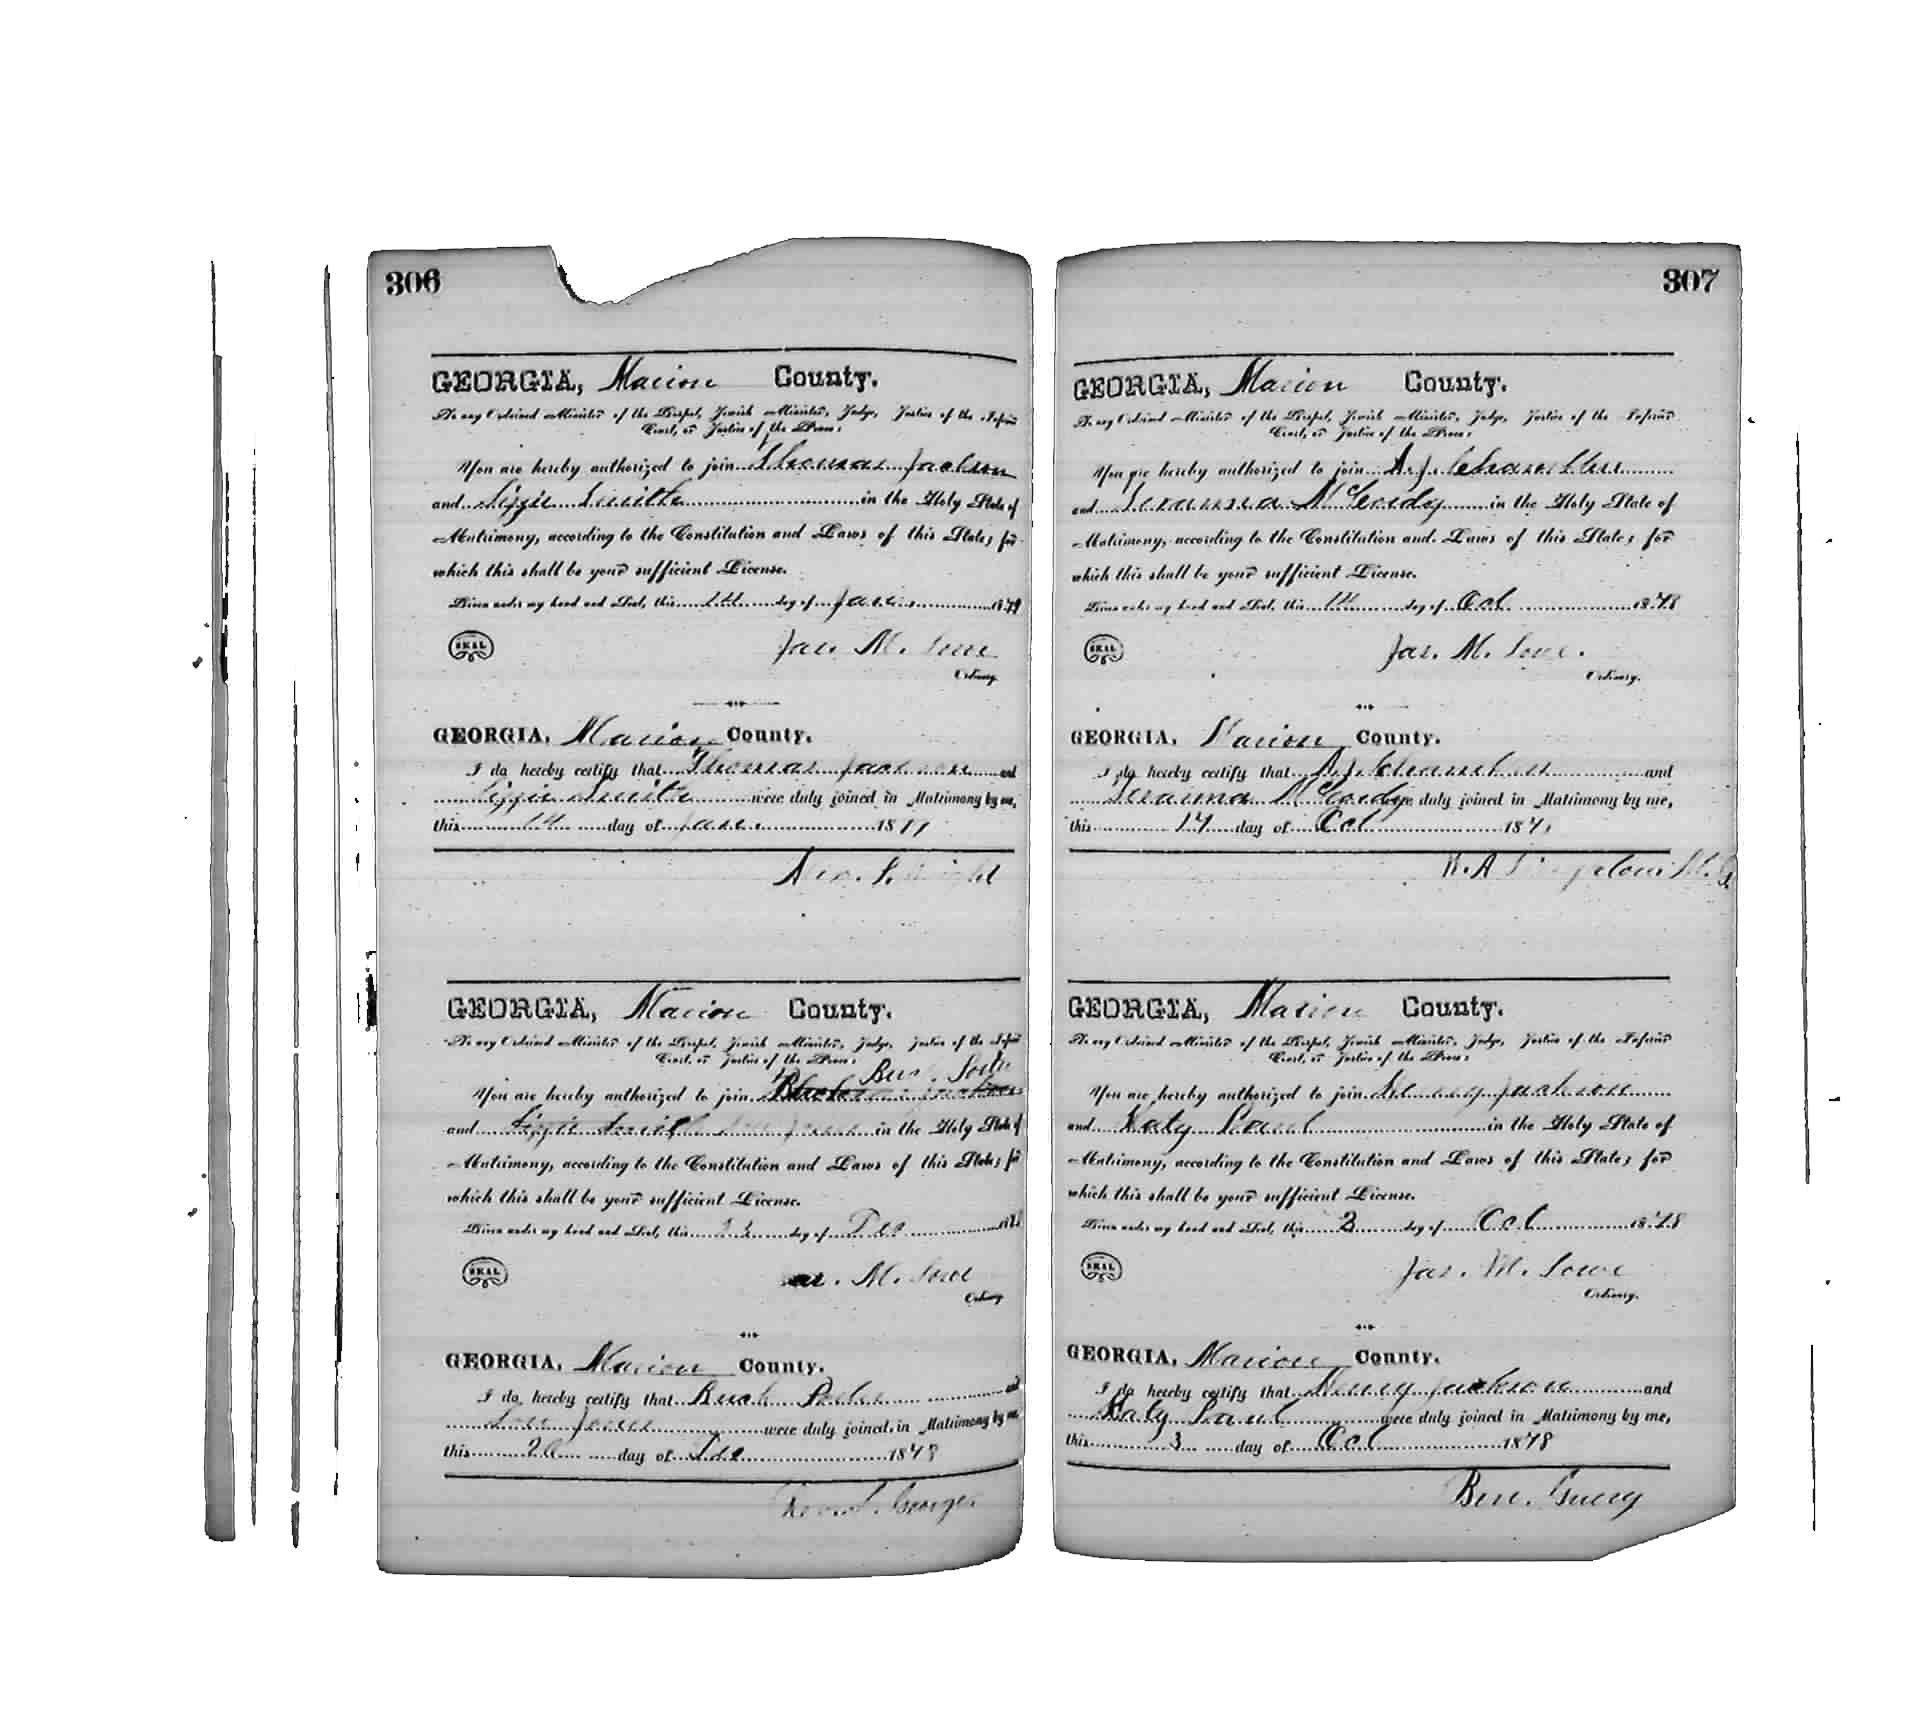 306
GEORGIA, Marion County.
To any Ordained Minister of the Gospel, Jewish Minister, Judge, Justice of the Inferior
Court, or Justice of the Peace:
You are hereby authorized to join Thomas Jackson
and Lizzie Smith in the Holy State of
Matrimony, according to the Constitution and Laws of this State; for
which this shall be your sufficient License.
Given under my hand and Seal, this 14 day of Jan. 1879
SEAL Jas. M. Lowe
Ordinary.
GEORGIA, Marion County.
I do hereby certify that Thomas Jackson and
Lizzie Smith were duly joined in Matrimony by me,
this 14 day of Jan. 1879
GEORGIA, Marion County.
To any Ordained Minister of the Gospel, Jewish Minister, Judge, Justice of the Inferior
Court, or Justice of the Peace:
You are hereby authorized to join
and Lizzie Smith Jones in the Holy State of
Matrimony, according to the Constitution and Laws of this State; for
which this shall be your sufficient License.
Given under my hand and Seal, this day of Dec 187
SEAL M. Lowe
Ordinary
GEORGIA, Marion County.
I do hereby certify that Bush and
Jones were duly joined in Matrimony by me,
this day of Dec 1878
George
307
GEORGIA, Marion County.
To any Ordained Minister of the Gospel, Jewish Minister, Judge, Justice of the Inferior
Court, or Justice of the Peace:
You are hereby authorized to join A. J. Chambliss
and McCordy in the Holy State of
Matrimony, according to the Constitution and Laws of this State; for
which this shall be your sufficient License.
Given under my hand and Seal, this 14 day of Oct 1878
SEAL Jas. M. Lowe.
Ordinary.
GEORGIA, Marion County.
I do hereby certify that A. J. and
McCordy were duly joined in Matrimony by me,
this 17 day of Oct 187
M. G.
GEORGIA, Marion County.
To any Ordained Minister of the Gospel, Jewish Minister, Judge, Justice of the Inferior
Court, or Justice of the Peace:
You are hereby authorized to join Henry Jackson
and Katy Paul in the Holy State of
Matrimony, according to the Constitution and Laws of this State; for
which this shall be your sufficient License.
Given under my hand and Seal, this 3 day of Oct 1878
SEAL Jas. M. Lowe
Ordinary.
GEORGIA, Marion County.
I do hereby certify that Henry Jackson and
Katy Paul were duly joined in Matrimony by me,
this 3 day of Oct 1878
Ben. Guery